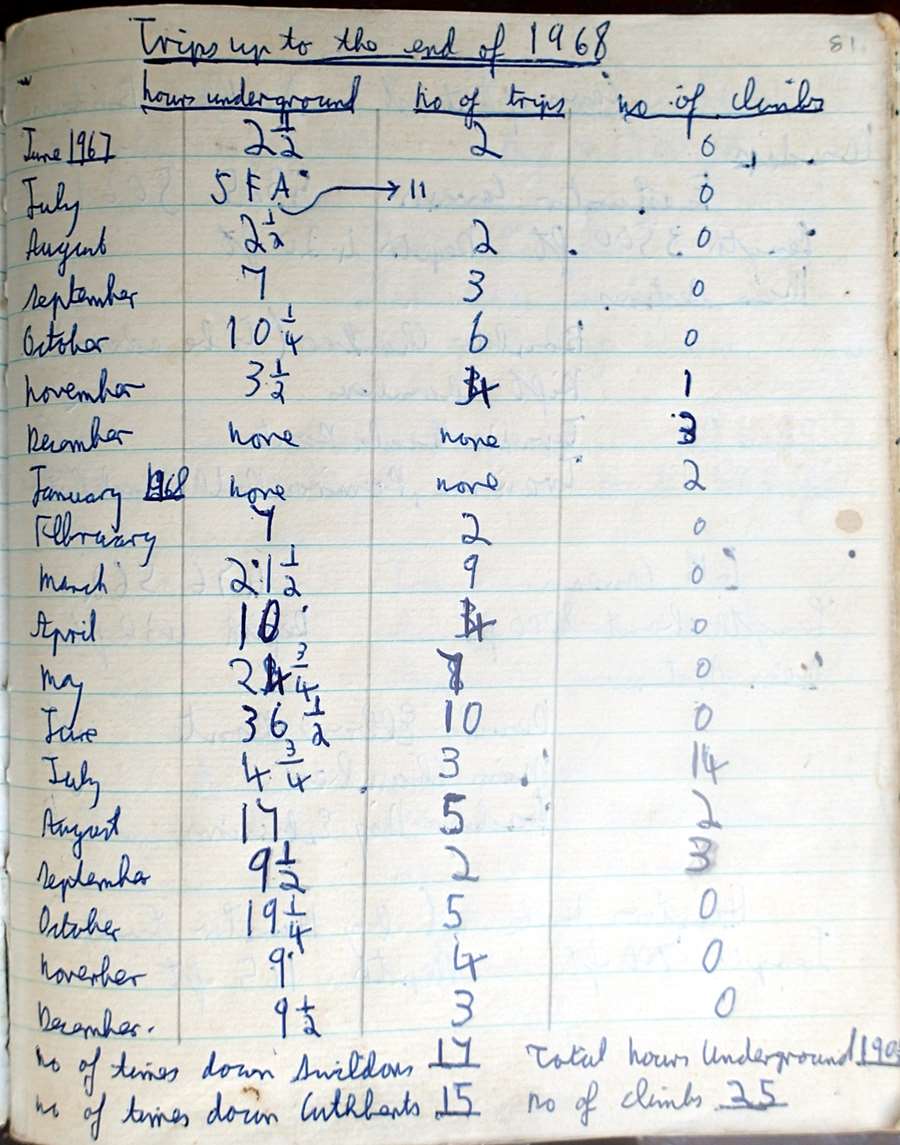 81.
Trips up to the end of 1968
hours underground no of trips no of climbs
June 1967 2 1/2 2 0
July S F A → 11 0
August 2 1/2 2 0
September 7 3 0
October 10 1/4 6 0
november 3 1/2 4 1
December none none 3
January 1968 none none 2
February 7 2 0
march 21 1/2 9 0
April 10 4 0
may 24 3/4 0
June 36 1/2 10 0
July 4 3/4 3 14
August 17 5 2
September 9 1/2 2 3
October 19 1/4 5 0
November 9 4 0
December. 9 1/2 3 0
no of times down Swildons 17 Total hours Underground 190
no of times down Cuthberts 15 no of climbs 25